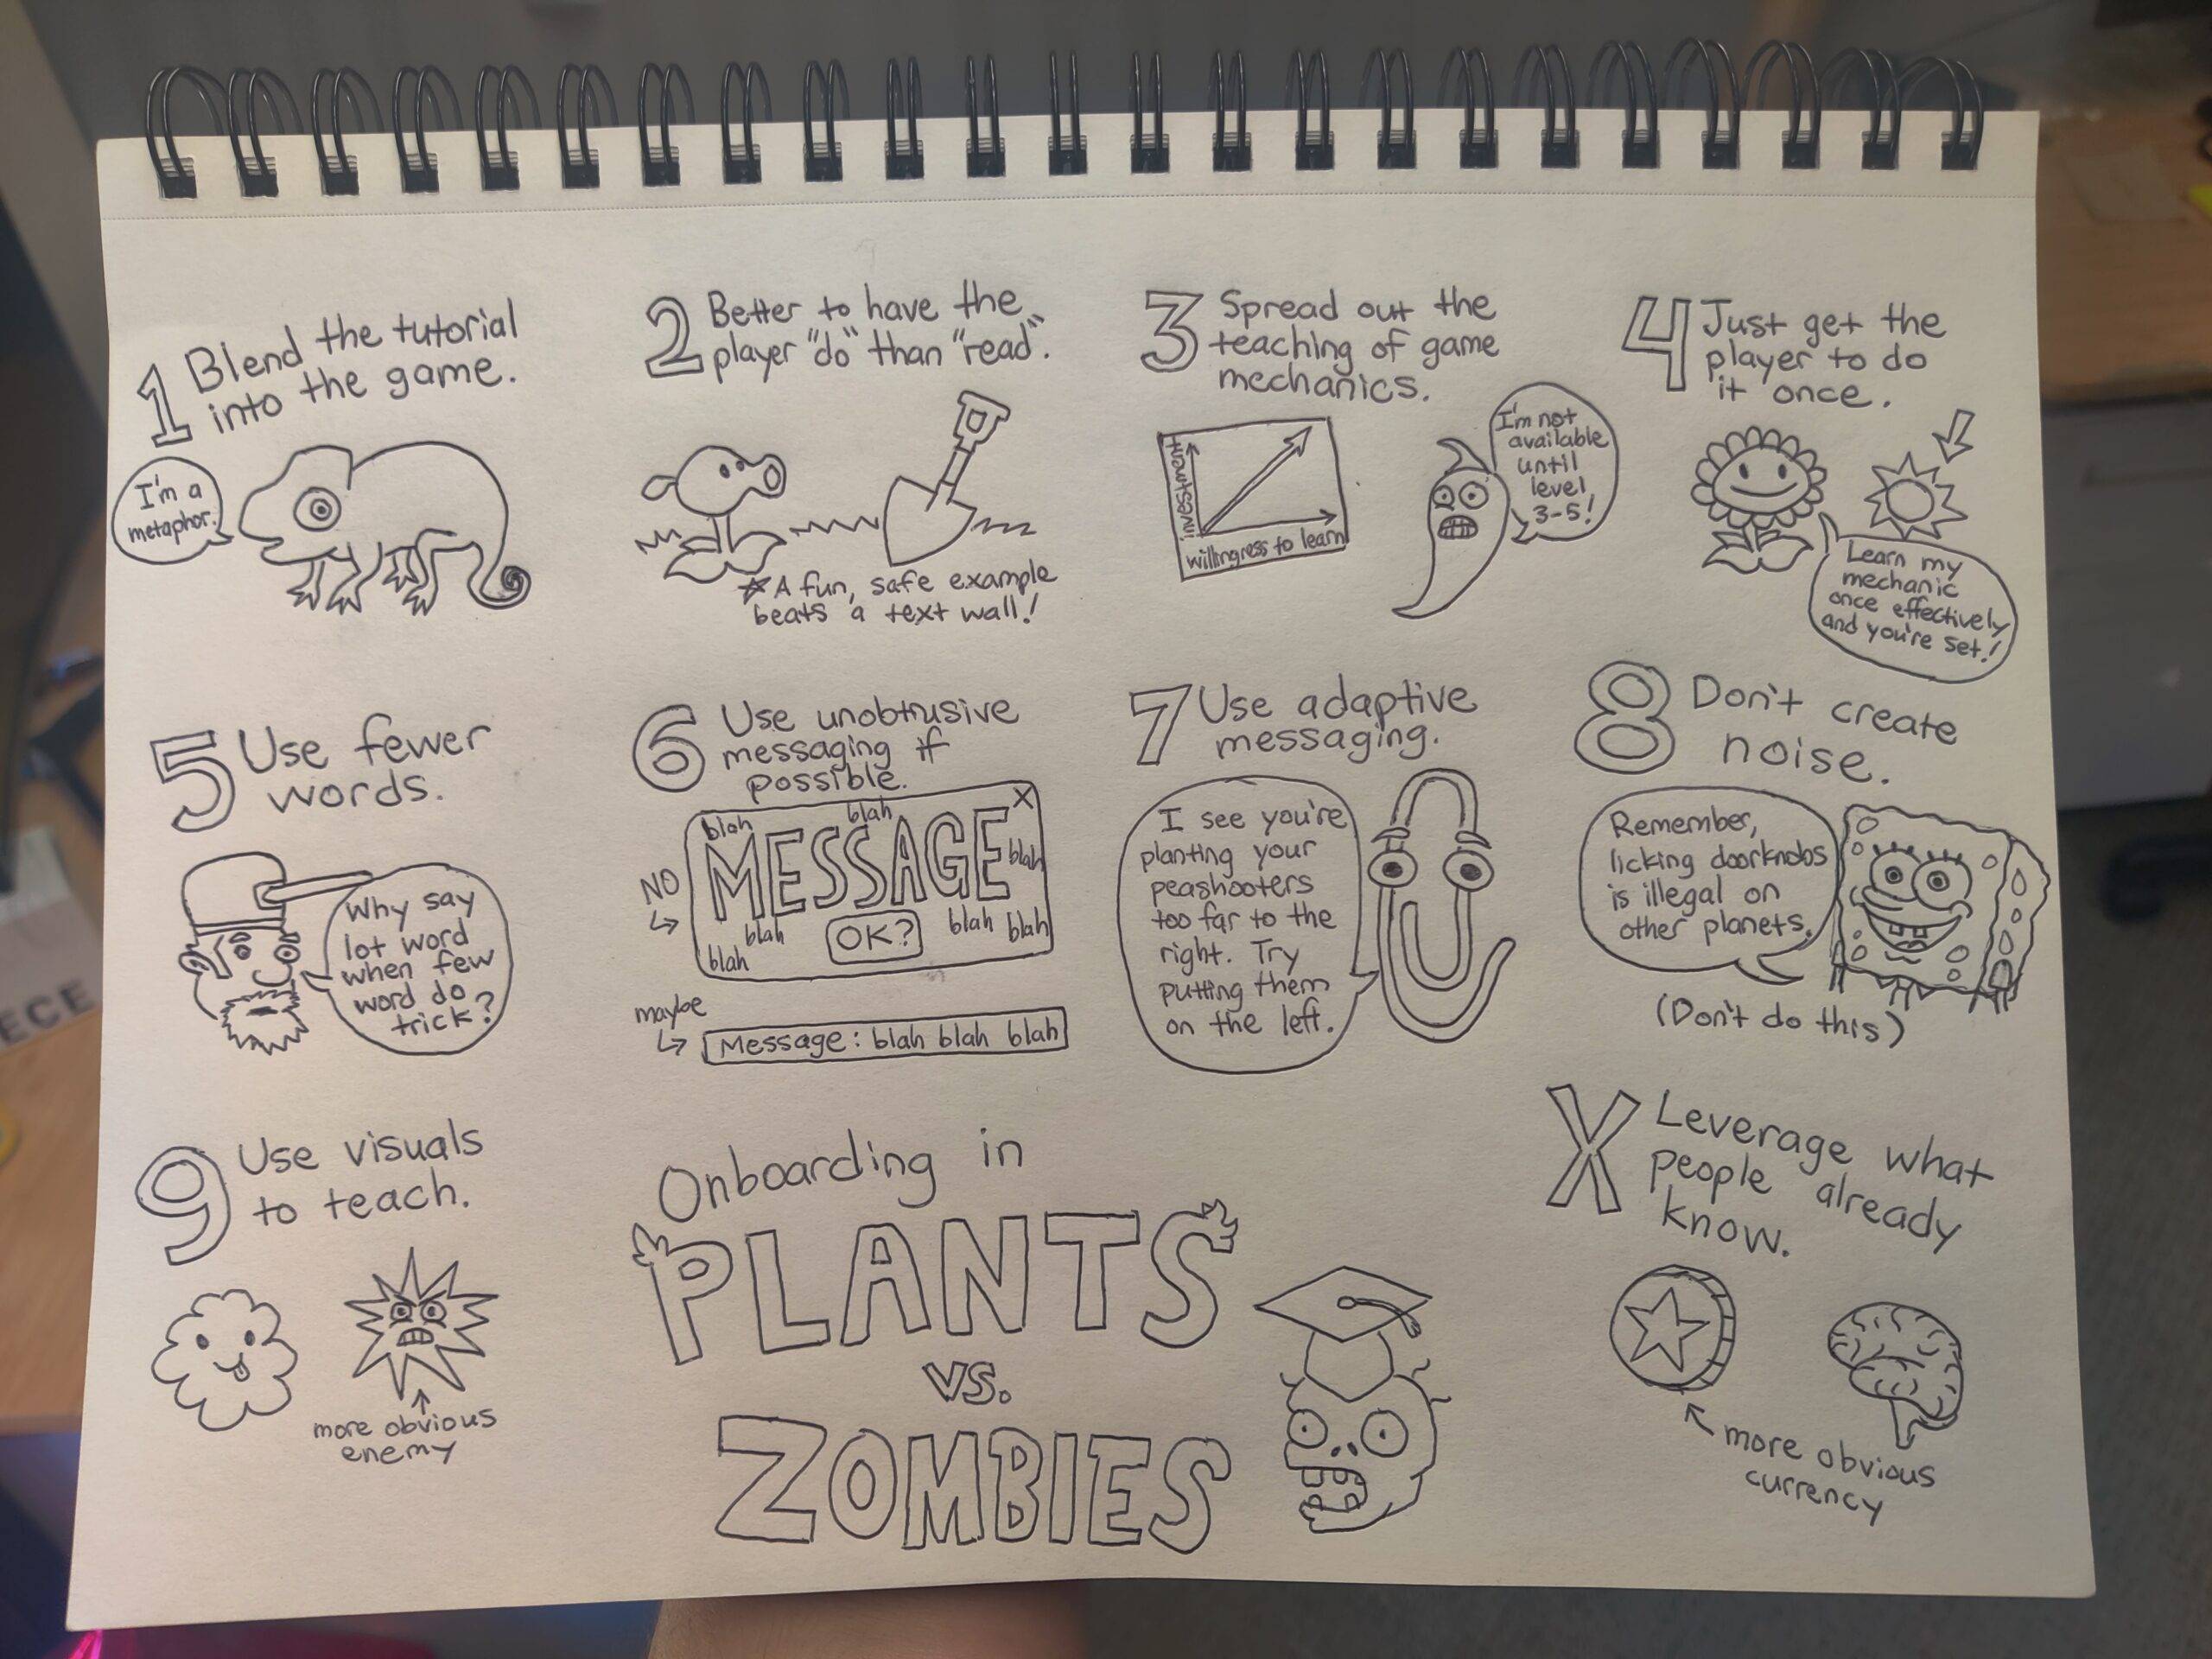 1 Blend the tutorial
into the game.
I'm a
metaphor.
2 Better to have the
player "do" than "read".
* A fun, safe example
beats a text wall!
3 Spread out the
teaching of game
mechanics.
investment
willingness to learn
I'm not
available
until
level
3-5!
4 Just get the
player to do
it once.
Learn my
mechanic
once effectively
and you're set!
5 Use fewer
words.
Why say
lot word
when few
word do
trick?
6 Use unobtrusive
messaging if
possible.
NO
X
blah
blah
MESSAGE
blah
blah
OK?
blah
blah
blah
maybe
Message: blah blah blah
7 Use adaptive
messaging.
I see you're
planting your
peashooters
too far to the
right. Try
putting them
on the left.
8 Don't create
noise.
Remember,
licking doorknobs
is illegal on
other planets.
(Don't do this)
9 Use visuals
to teach.
more obvious
enemy
Onboarding in
PLANTS
VS.
ZOMBIES
X Leverage what
people already
know.
more obvious
currency
ECE